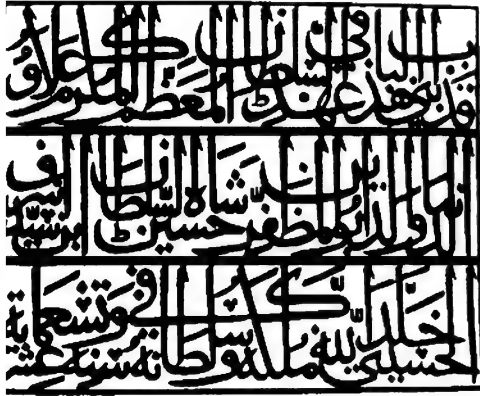 قد بني هذ الباب في عهد السلطان المعظم المكرم علاؤ
الدنيا والدين ابو المظفر حسين شاه السلطان ابن سيد اشرف
الحسيني خلد الله ملكه وسلطانه في سنة عشر وتسعماية